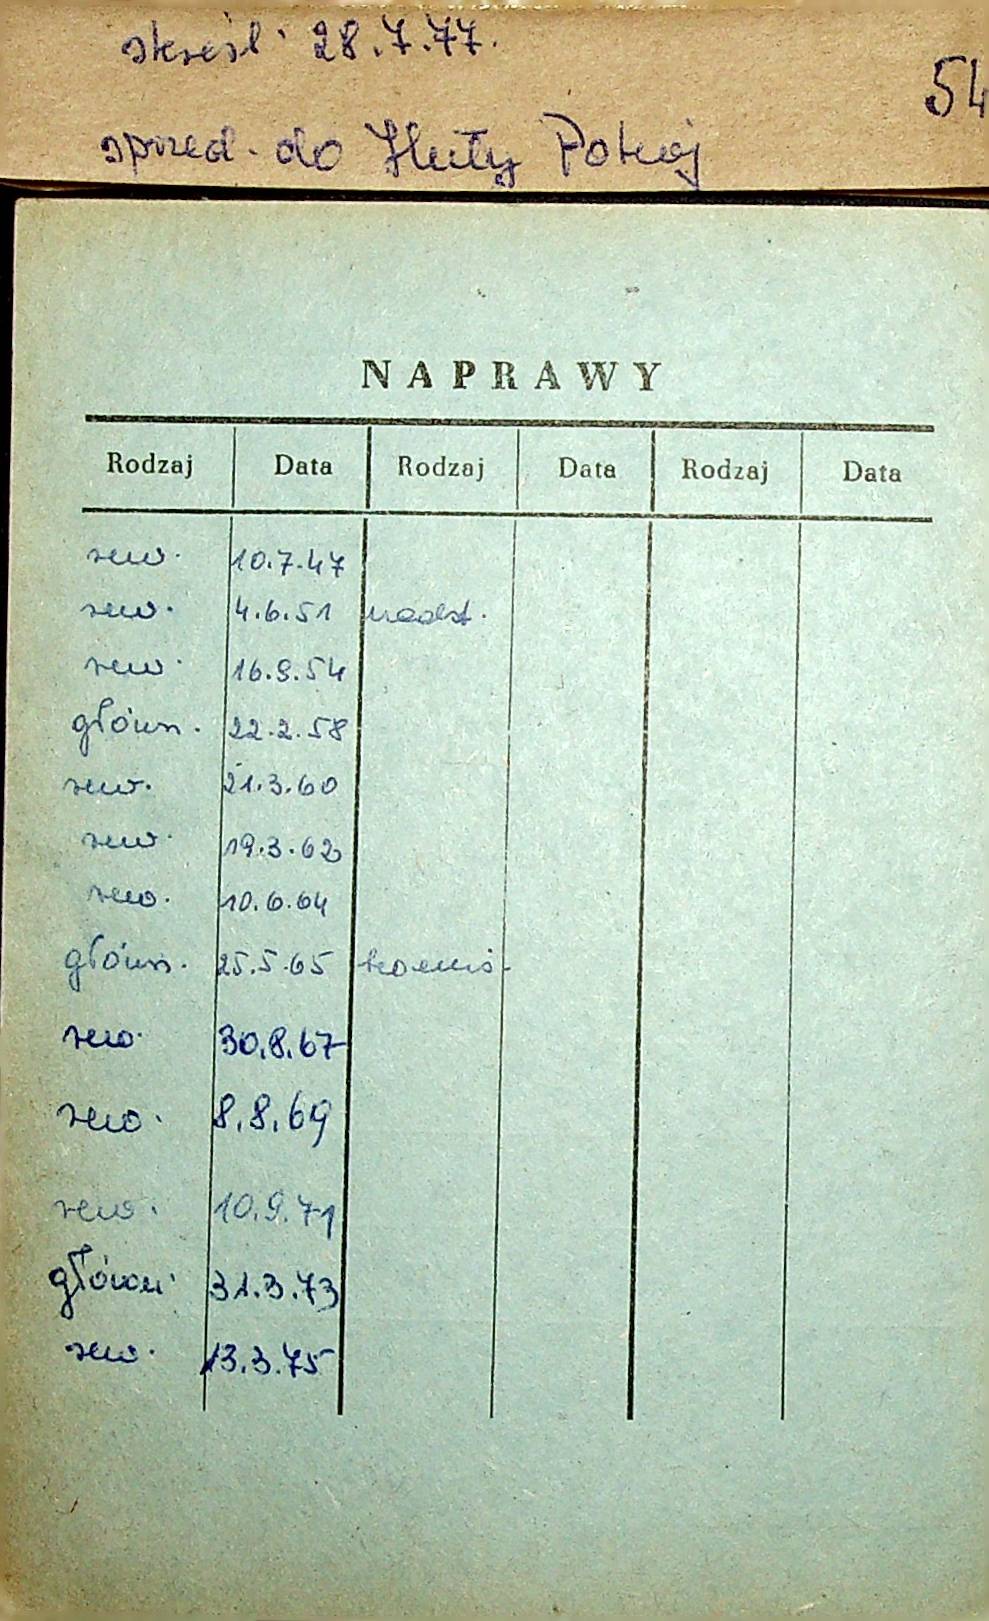 skreśl. 28.7.77.
54
sprzed. do Huty Pokój
NAPRAWY
Rodzaj Data Rodzaj Data Rodzaj Data
rew. 10.7.47
rew. 4.6.51 nadst.
rew. 16.9.54
główn. 22.2.58
rew. 21.3.60
rew. 19.3.62
rew. 10.6.64
główn. 25.5.65
rew. 30.8.67
rew. 8.8.69
rew. 10.9.71
główn. 31.3.73
rew. 13.3.75